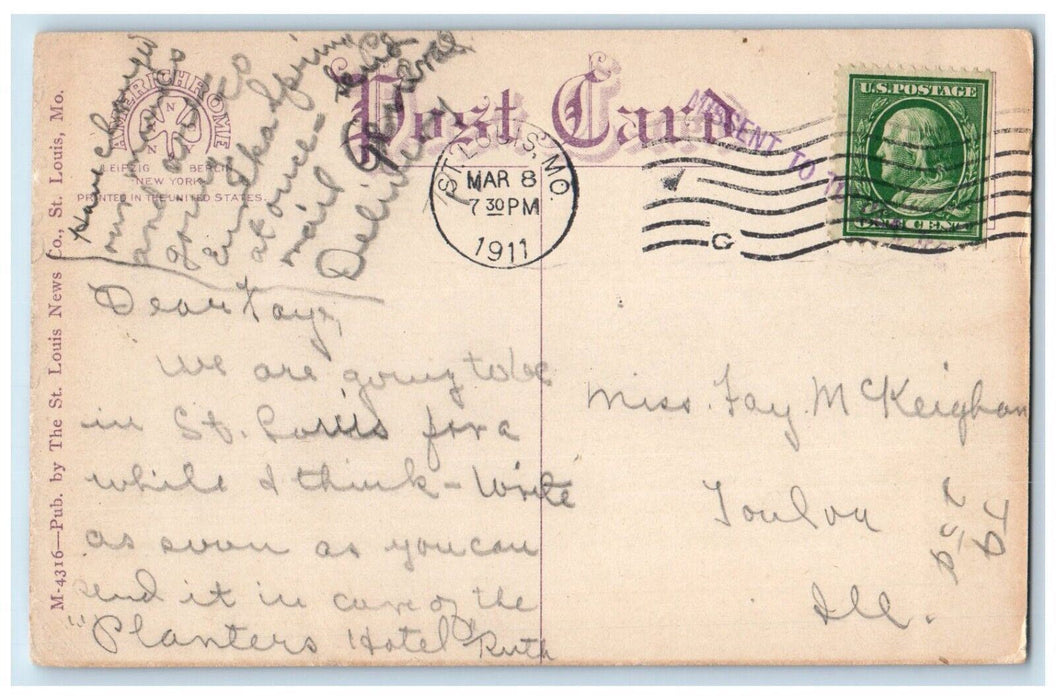 Post Card
AMERICHROME
LEIPZIG BERLIN
NEW YORK
PRINTED IN THE UNITED STATES.
M-4316—Pub. by The St. Louis News Co., St. Louis, Mo.
ST. LOUIS, MO.
MAR 8
7 30 PM
1911
G
MISSENT TO
U.S. POSTAGE
ONE CENT
Have changed
my mind
and
going to
Eureka Springs
at once -
mail
General
Delivery
Dear Faye,
We are going to be
in St. Louis for a
while I think - Write
as soon as you can
send it in care of the
"Planters Hotel" Ruth
Miss. Fay McKeighan
Toulon
Ill.